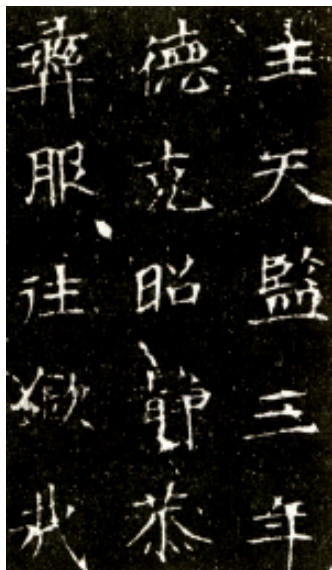 主天監三年
德克昭節恭
彝服往欽哉